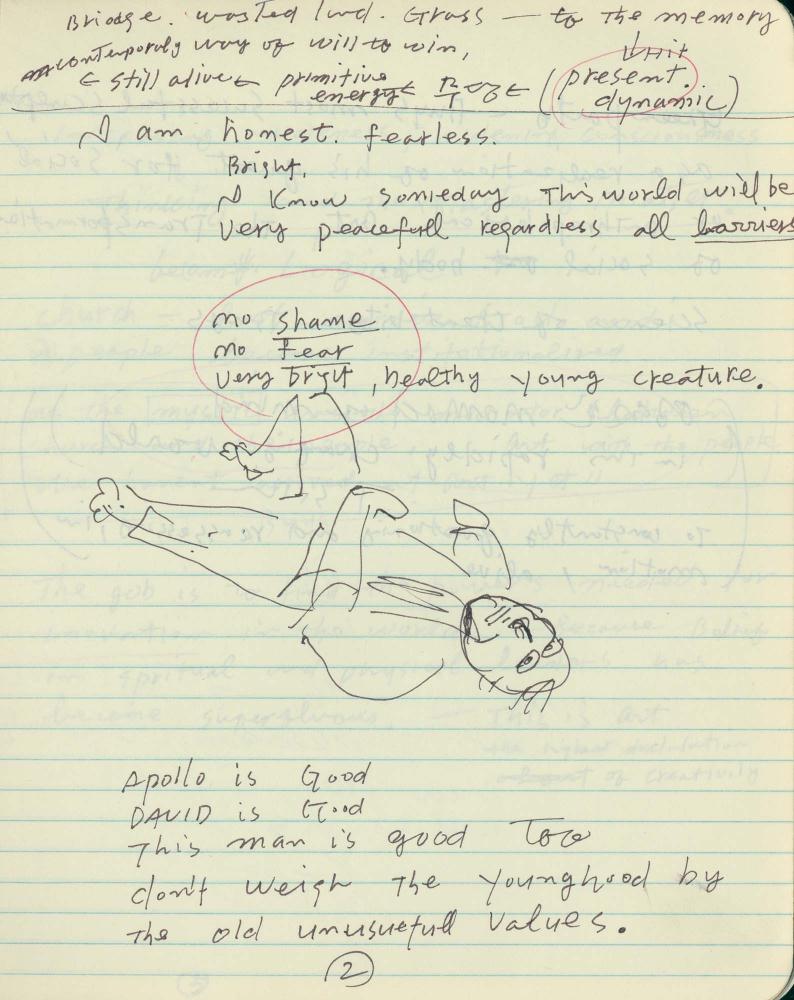 Bridge. wasted land. Grass — to the memory
contemporaly way of will to win,
Unit
← still alive ← primitive energy ← (present. dynamic)
I am honest. fearless.
Bright.
I Know someday This world will be
very peacefull regardless all barriers
no shame
no fear
very brigt, healthy young creature.
Apollo is Good
DAVID is Good
This man is good Too
don't weigh The Younghood by
The old unusuefull values.
2